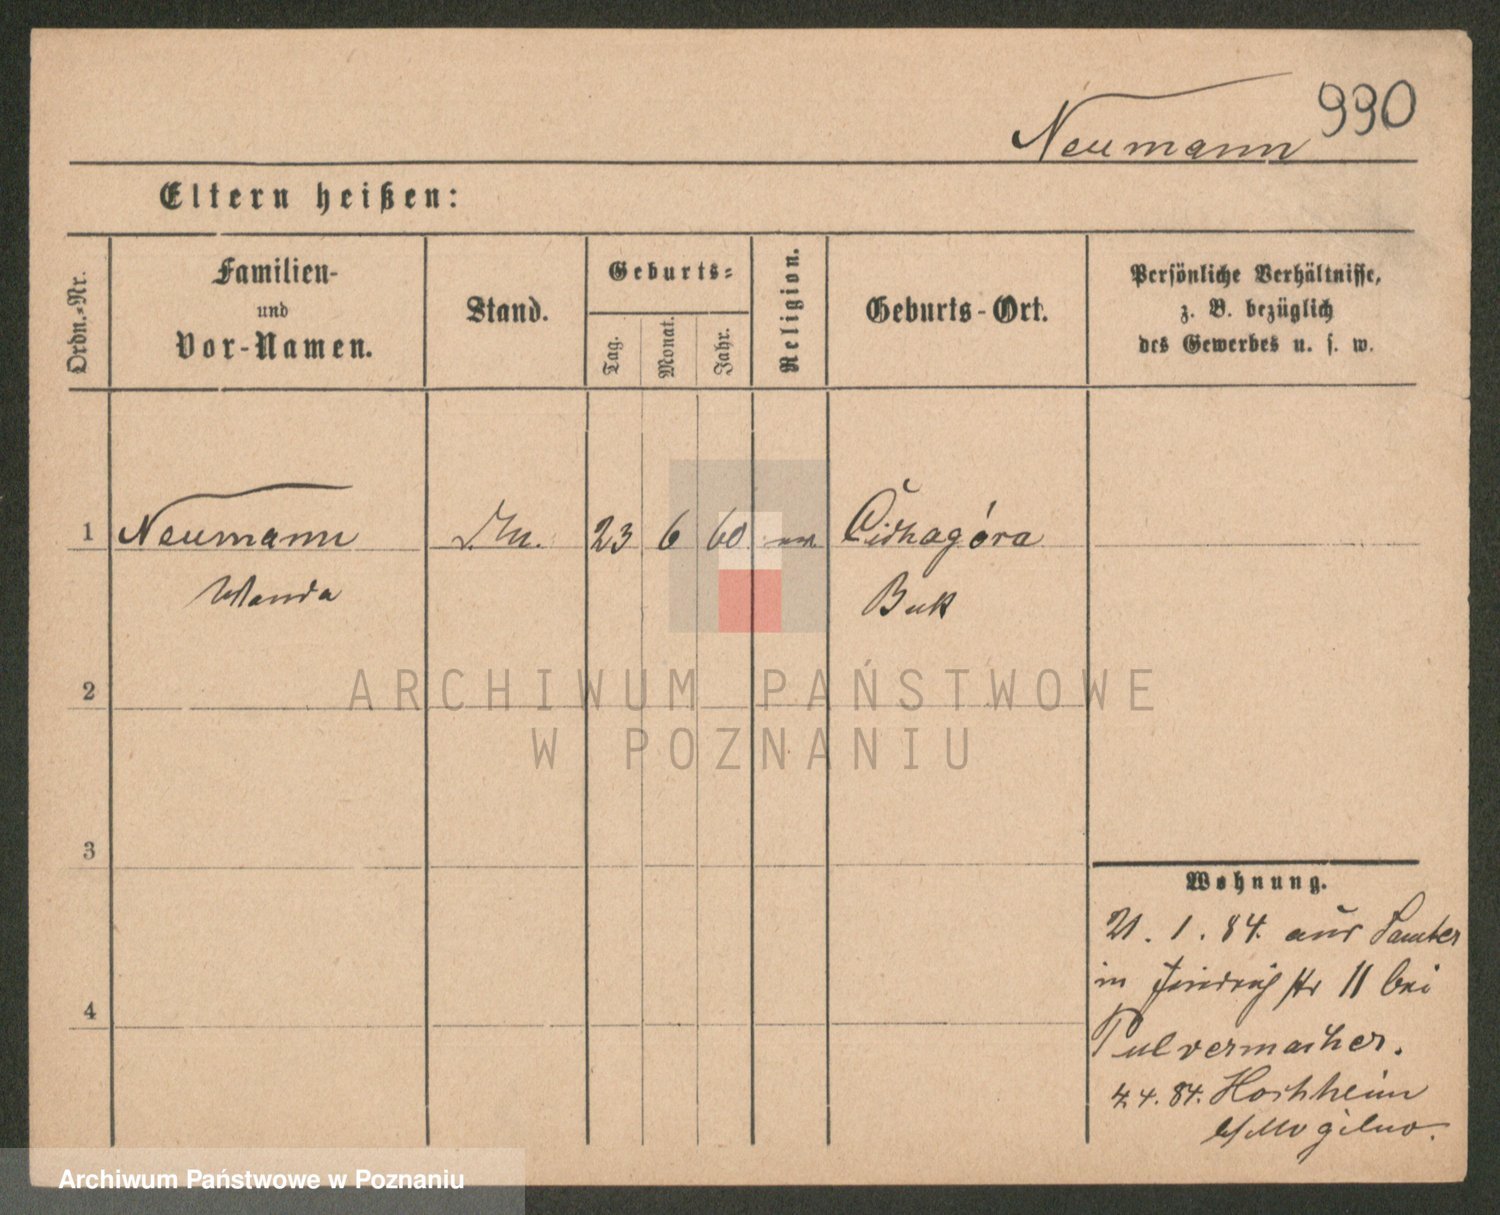 990
Neumann
Eltern heißen:
Ordn.-Nr.
Familien-
und
Vor-Namen.
Stand.
Geburts-
Tag.
Monat.
Jahr.
Religion.
Geburts-Ort.
Persönliche Verhältnisse,
z. B. bezüglich
des Gewerbes u. s. w.
1 Neumann 23 6 60
Wanda Buk
2
ARCHIWUM PAŃSTWOWE
W POZNANIU
3
Wohnung.
21. 1. 84. aus Samter
in 11 bei
4
Pulvermacher.
4.4.84. Hochheim
b/Mogilno.
Archiwum Państwowe w Poznaniu